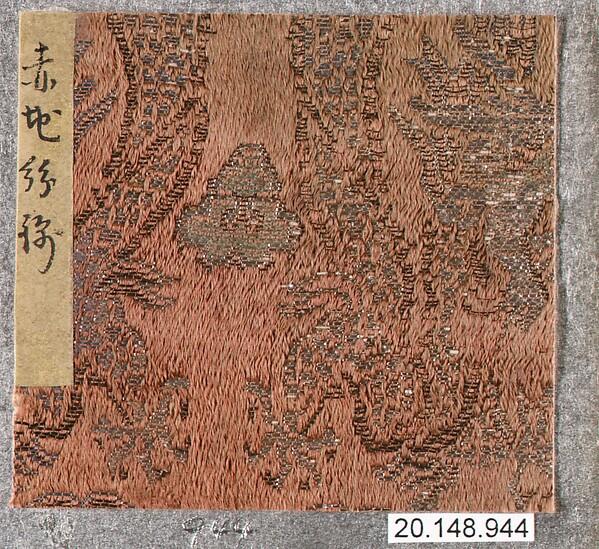 赤地
944
20.148.944